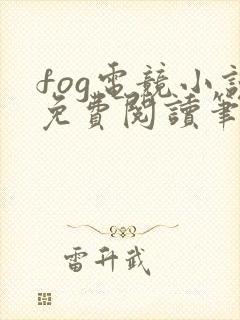 fog電競小説
免費閱讀筆
雷升武